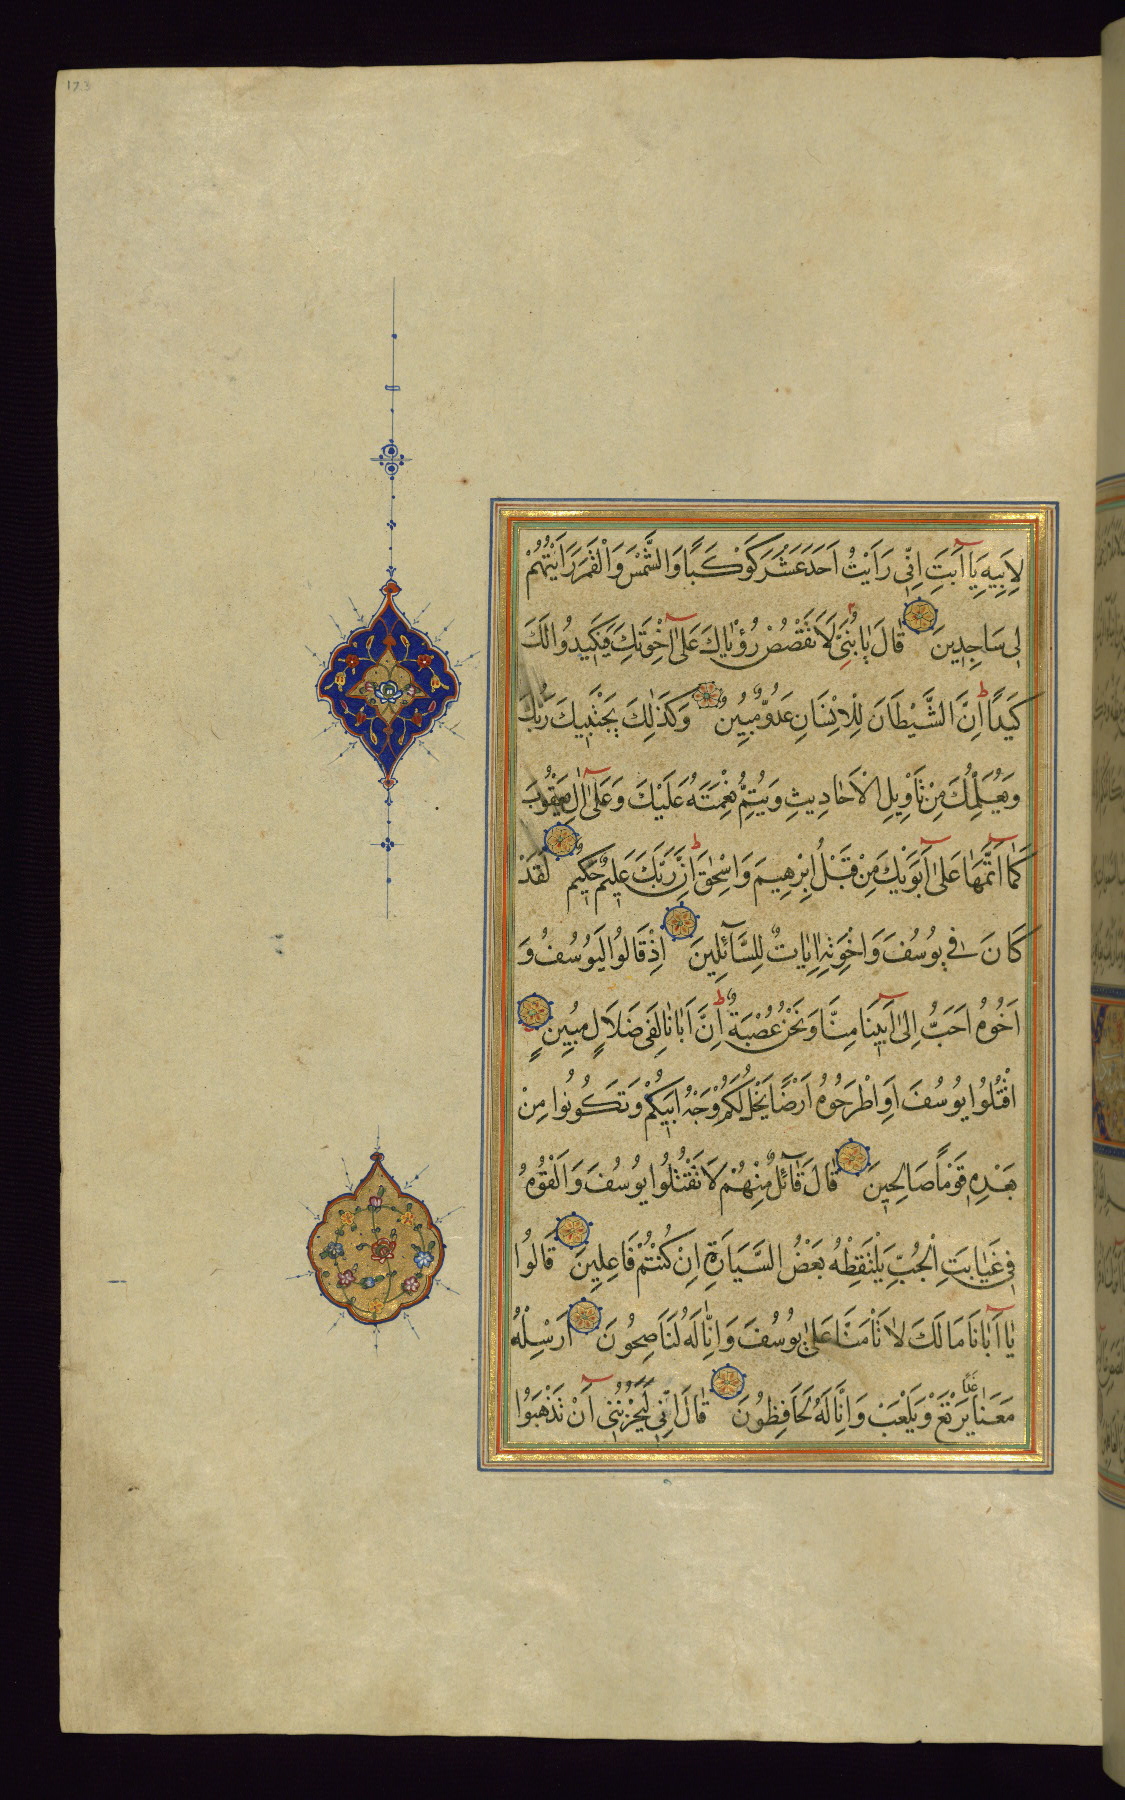 173
لِاَبِيهِ يَآ اَبَتِ اِنّ۪ي رَاَيْتُ اَحَدَ عَشَرَ كَوْكَبًا وَالشَّمْسَ وَالْقَمَرَ رَاَيْتُهُمْ
ل۪ي سَاجِد۪ينَ قَالَ يَا بُنَيَّ لَا تَقْصُصْ رُؤْيَاكَ عَلٰٓى اِخْوَتِكَ فَيَك۪يدُوا لَكَ
كَيْدًا اِنَّ الشَّيْطَانَ لِلْاِنْسَانِ عَدُوٌّ مُب۪ينٌ وَكَذٰلِكَ يَجْتَب۪يكَ رَبُّكَ
وَيُعَلِّمُكَ مِنْ تَاْو۪يلِ الْاَحَاد۪يثِ وَيُتِمُّ نِعْمَتَهُ عَلَيْكَ وَعَلٰٓى اٰلِ يَعْقُوبَ
كَمَٓا اَتَمَّهَا عَلٰٓى اَبَوَيْكَ مِنْ قَبْلُ اِبْرٰه۪يمَ وَاِسْحٰقَ اِنَّ رَبَّكَ عَل۪يمٌ حَك۪يمٌ لَقَدْ
كَانَ ف۪ي يُوسُفَ وَاِخْوَتِه۪ اٰيَاتٌ لِلسَّٓائِل۪ينَ اِذْ قَالُوا لَيُوسُفُ وَ
اَخُوهُ اَحَبُّ اِلٰٓى اَب۪ينَا مِنَّا وَنَحْنُ عُصْبَةٌ اِنَّ اَبَانَا لَف۪ي ضَلَالٍ مُب۪ينٍ
اقْتُلُوا يُوسُفَ اَوِ اطْرَحُوهُ اَرْضًا يَخْلُ لَكُمْ وَجْهُ اَب۪يكُمْ وَتَكُونُوا مِنْ
بَعْدِه۪ قَوْمًا صَالِح۪ينَ قَالَ قَٓائِلٌ مِنْهُمْ لَا تَقْتُلُوا يُوسُفَ وَاَلْقُوهُ
ف۪ي غَيَابَتِ الْجُبِّ يَلْتَقِطْهُ بَعْضُ السَّيَّارَةِ اِنْ كُنْتُمْ فَاعِل۪ينَ قَالُوا
يَآ اَبَانَا مَا لَكَ لَا تَاْمَنَّا عَلٰى يُوسُفَ وَاِنَّا لَهُ لَنَاصِحُونَ اَرْسِلْهُ
مَعَنَا غَدًا يَرْتَعْ وَيَلْعَبْ وَاِنَّا لَهُ لَحَافِظُونَ قَالَ اِنّ۪ي لَيَحْزُنُن۪ٓي اَنْ تَذْهَبُوا